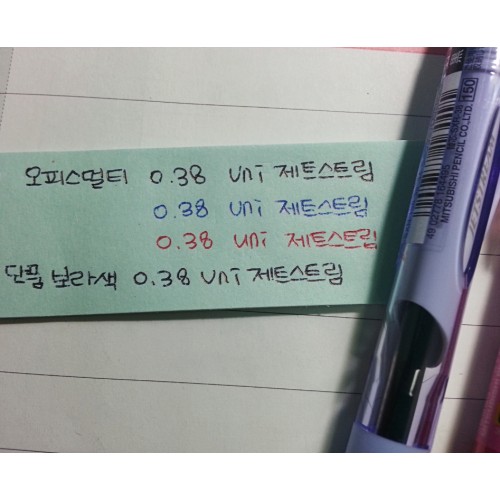 오피스멀티 0.38 uni 제트스트림
0.38 uni 제트스트림
0.38 uni 제트스트림
단품 보라색 0.38 uni 제트스트림
MITSUBISHI PENCIL CO.,LTD. 150